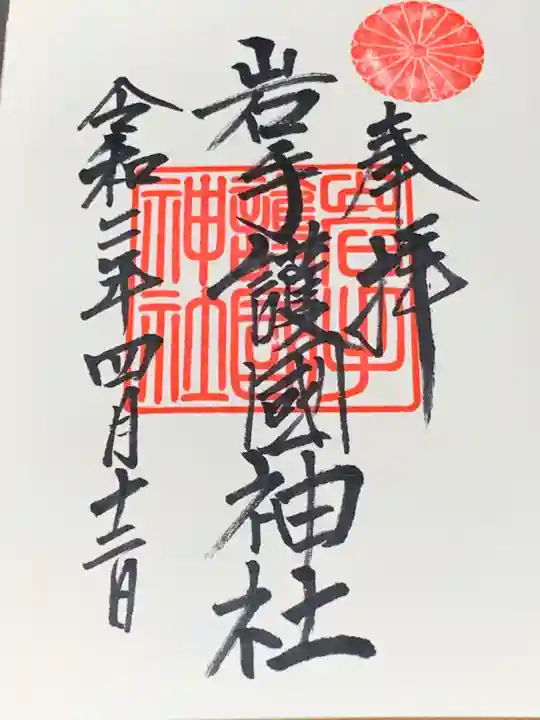 奉拝
岩手護國神社
岩手護國神社
令和二年四月十二日